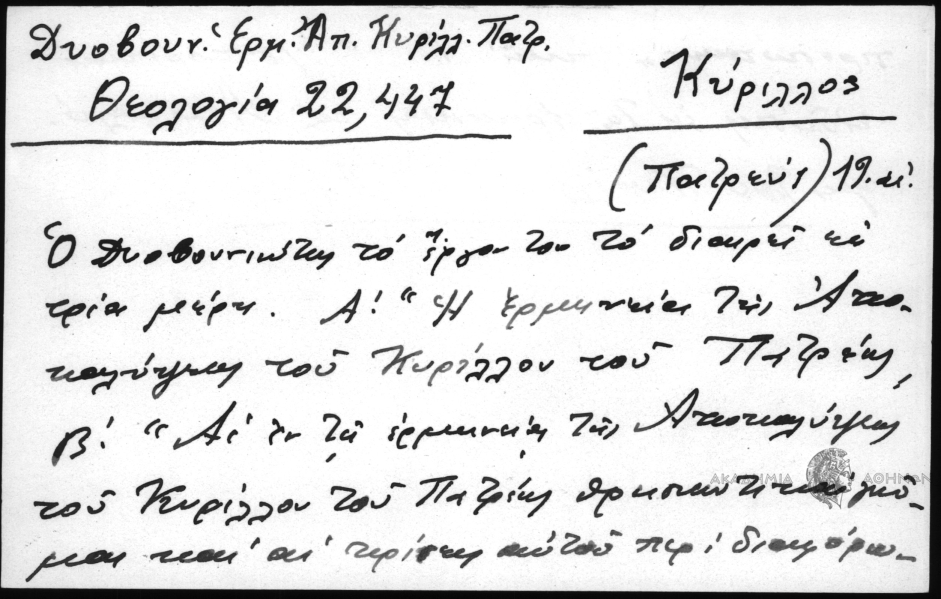 Δυοβουν. Ἑρμ. Ἀπ. Κυρίλλ. Πατρ.
Θεολογία 22,447
Κύριλλος
(Πατρεύς) 19. αἰ.
Ὁ Δυοβουνιώτης τό ἔργον του τό διαιρεῖ εἰς
τρία μέρη. Α! "Ἡ ἑρμηνεία τῆς Ἀπο-
καλύψεως τοῦ Κυρίλλου τοῦ Πατρέως,
Β! "Αἱ ἐν τῇ ἑρμηνείᾳ τῆς Ἀποκαλύψεως
τοῦ Κυρίλλου τοῦ Πατρέως θρησκευτικαί γνῶ-
μαι καί αἱ κρίσεις αὐτοῦ περί διαφόρων
ΑΚΑΔΗΜΙΑ ΑΘΗΝΩΝ